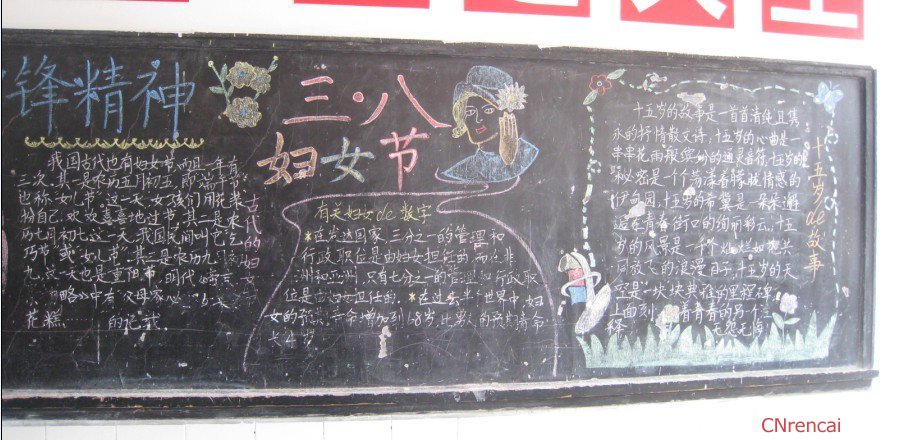 锋精神
我国古代也有妇女节,而且一年有
三次,其一是农历五月初五,即端午节
也称女儿节。这一天,女孩们用花装
扮自己,欢欢喜喜地过节。其二是农
历七月初七这一天,我国民间叫它乞
巧节或女儿节。其三是农历九月初
九,这一天也是重阳节,明代
略》中有"父母家必
花糕 的记载.
古代的妇女
三·八
妇女节
有关妇女de数字
*在发达国家,三分之一的管理和
行政职位是由妇女担任的,而在非
洲和亚洲,只有七分之一的管理和行政职
位是由妇女担任的.*在过去半世纪中,妇
女的预 寿命增加到48岁,比男人的预期寿命
长4岁
十五岁的故事是一首首清纯且隽
永的抒情散文诗,十五岁的心曲是一
串串花雨般缤纷的 音符,十五岁的
秘密是一个荡漾着朦胧情感的
伊甸园,十五岁的希冀是一朵朵邂
逅在青春街口的绚丽彩云,十五
岁的风景是一个个灿烂如 共
同放飞的浪漫日子,十五岁的天
空是一块块典雅的里程碑,
上面刻 着青春的另一个
释 无怨无悔
十五岁de故事
CNrencai